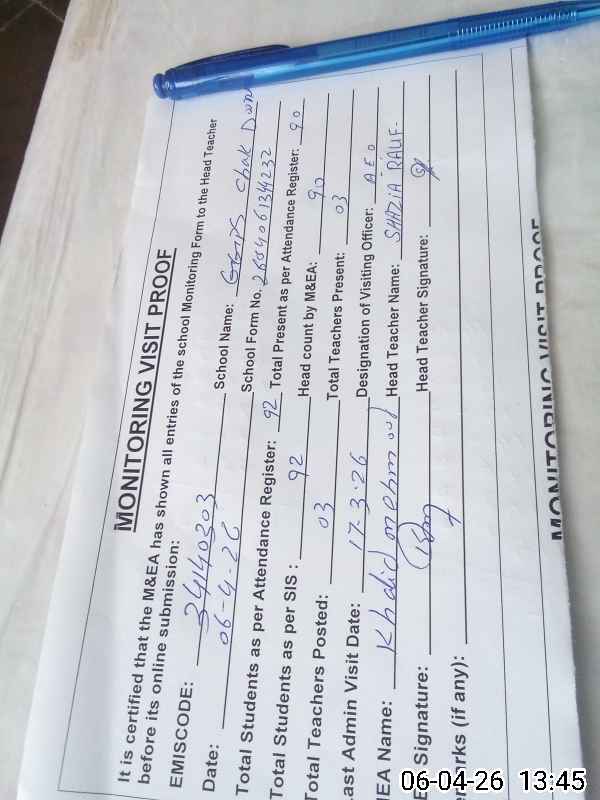 MONITORING VISIT PROOF
It is certified that the M&EA has shown all entries of the school Monitoring Form to the Head Teacher
before its online submission:
EMISCODE: 34140303 School Name: GGPS Chak Dina
Date: 06-4-26 School Form No. 2604061344232
Total Students as per Attendance Register: 92 Total Present as per Attendance Register: 90
Total Students as per SIS : 92 Head count by M&EA: 90
Total Teachers Posted: 03 Total Teachers Present: 03
Last Admin Visit Date: 17-3-26 Designation of Visiting Officer: AEO
MEA Name: Khalid mehmood Head Teacher Name: SHAZIA RAUF
Signature: Head Teacher Signature:
marks (if any):
MONITORING VISIT PROOF
06-04-26 13:45